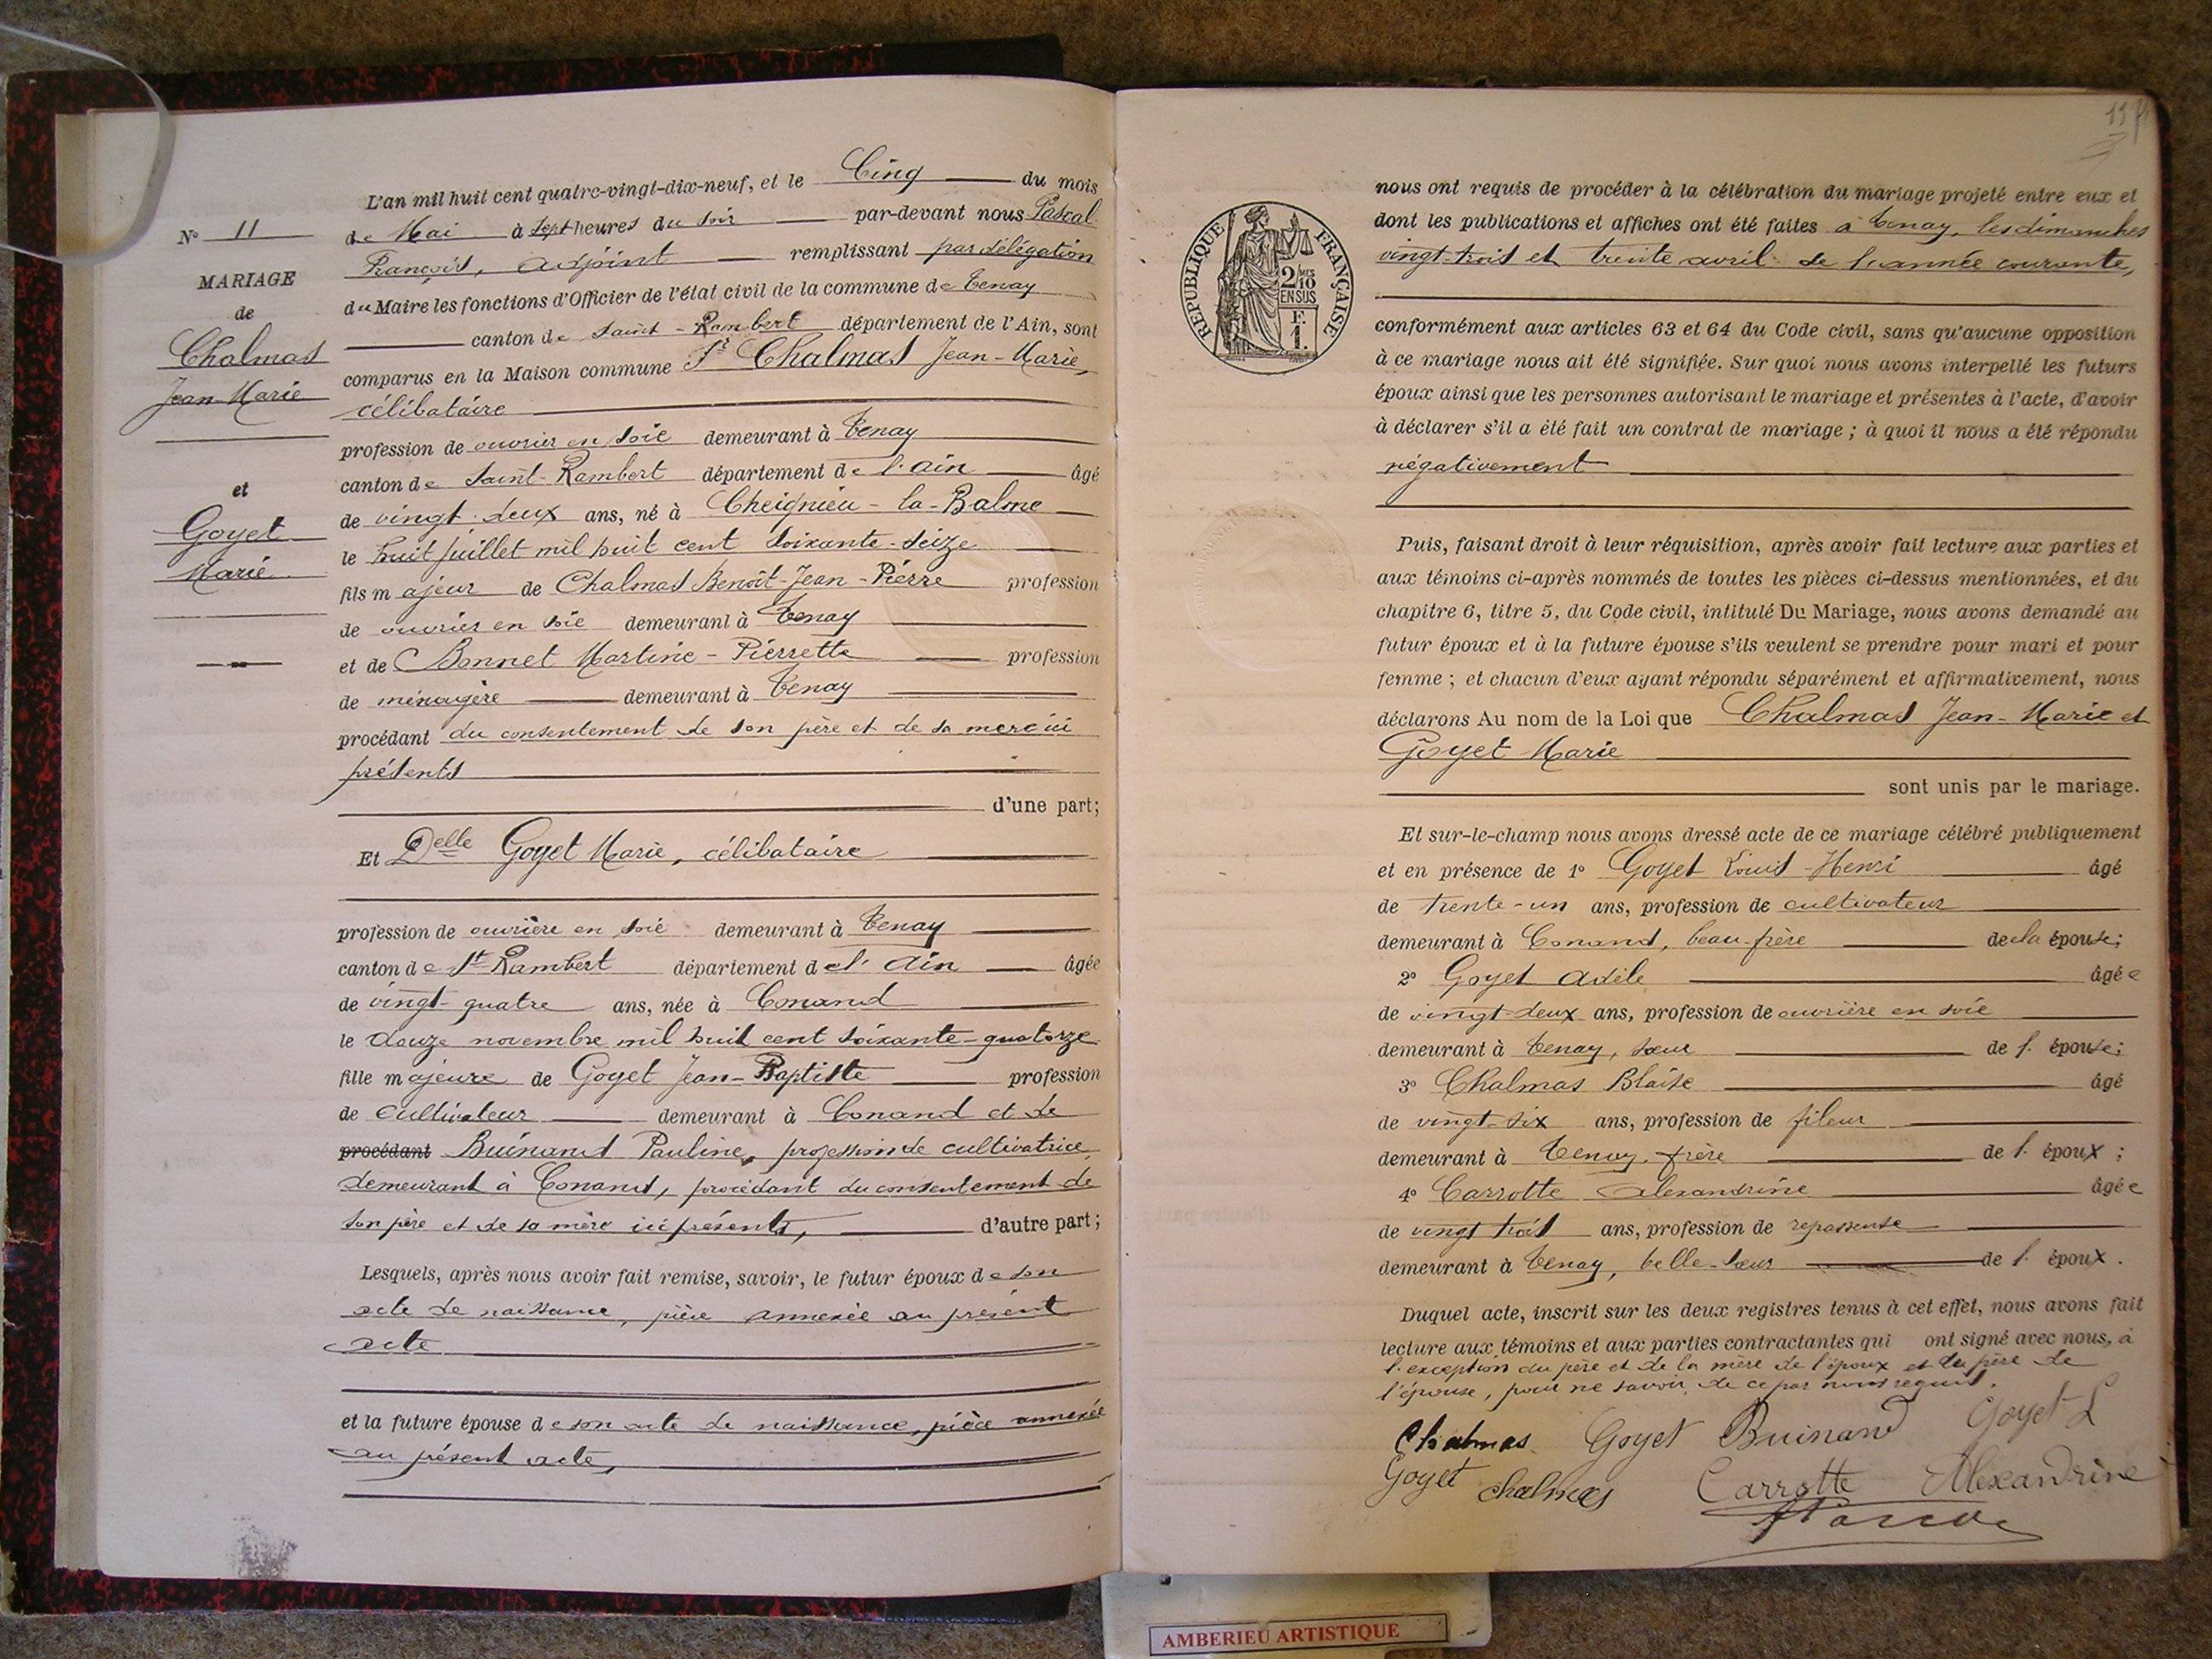 N° 11
MARIAGE
de
Chalmas
Jean-Marie
et
Goyet
Marie
L'an mil huit cent quatre-vingt-dix-neuf, et le Cinq du mois
de Mai à sept heures du soir par-devant nous Pascal
François, adjoint remplissant par délégation
du Maire les fonctions d'Officier de l'état civil de la commune de Tenay
canton de Saint-Rambert département de l'Ain, sont
comparus en la Maison commune Sr Chalmas Jean-Marie,
célibataire
profession de ouvrier en soie demeurant à Tenay
canton de Saint-Rambert département de l'Ain âgé
de vingt-deux ans, né à Cheignieu-la-Balme
le huit juillet mil huit cent soixante-seize
fils majeur de Chalmas Benoît-Jean-Pierre profession
de ouvrier en soie demeurant à Tenay
et de Bonnet Martine-Pierrette profession
de ménagère demeurant à Tenay
procédant du consentement de son père et de sa mère ici
présents
d'une part;
Et Delle Goyet Marie, célibataire
profession de ouvrière en soie demeurant à Tenay
canton de St Rambert département de l'Ain âgée
de vingt-quatre ans, née à Conand
le douze novembre mil huit cent soixante-quatorze
fille majeure de Goyet Jean-Baptiste profession
de cultivateur demeurant à Conand et de
procédant Buinand Pauline, profession de cultivatrice,
demeurant à Conand, procédant du consentement de
son père et de sa mère ici présents, d'autre part;
Lesquels, après nous avoir fait remise, savoir, le futur époux de son
acte de naissance, pièce annexée au présent
acte
et la future épouse de son acte de naissance, pièce annexée
au présent acte,
RÉPUBLIQUE FRANÇAISE
2/10 MES
EN SUS
F.
1.
nous ont requis de procéder à la célébration du mariage projeté entre eux et
dont les publications et affiches ont été faites à Tenay, les dimanches
vingt-trois et trente avril de l'année courante,
conformément aux articles 63 et 64 du Code civil, sans qu'aucune opposition
à ce mariage nous ait été signifiée. Sur quoi nous avons interpellé les futurs
époux ainsi que les personnes autorisant le mariage et présentes à l'acte, d'avoir
à déclarer s'il a été fait un contrat de mariage; à quoi il nous a été répondu
négativement
Puis, faisant droit à leur réquisition, après avoir fait lecture aux parties et
aux témoins ci-après nommés de toutes les pièces ci-dessus mentionnées, et du
chapitre 6, titre 5, du Code civil, intitulé Du Mariage, nous avons demandé au
futur époux et à la future épouse s'ils veulent se prendre pour mari et pour
femme; et chacun d'eux ayant répondu séparément et affirmativement, nous
déclarons Au nom de la Loi que Chalmas Jean-Marie et
Goyet Marie
sont unis par le mariage.
Et sur-le-champ nous avons dressé acte de ce mariage célébré publiquement
et en présence de 1° Goyet Louis-Henri âgé
de trente-un ans, profession de cultivateur
demeurant à Conand, beau-frère de la épouse;
2° Goyet Adèle âgée
de vingt-deux ans, profession de ouvrière en soie
demeurant à Tenay, sœur de l'épouse;
3° Chalmas Blaise âgé
de vingt-six ans, profession de fileur
demeurant à Tenay, frère de l'époux;
4° Carrotte Alexandrine âgée
de vingt trois ans, profession de repasseuse
demeurant à Tenay, belle-sœur de l'époux.
Duquel acte, inscrit sur les deux registres tenus à cet effet, nous avons fait
lecture aux témoins et aux parties contractantes qui ont signé avec nous, à
l'exception du père et de la mère de l'époux et du père de
l'épouse, pour ne savoir, de ce par nous requis.
Chalmas Goyet Buinand Goyet L
Goyet Chalmas Carrotte Alexandrine
AMBERIEU ARTISTIQUE